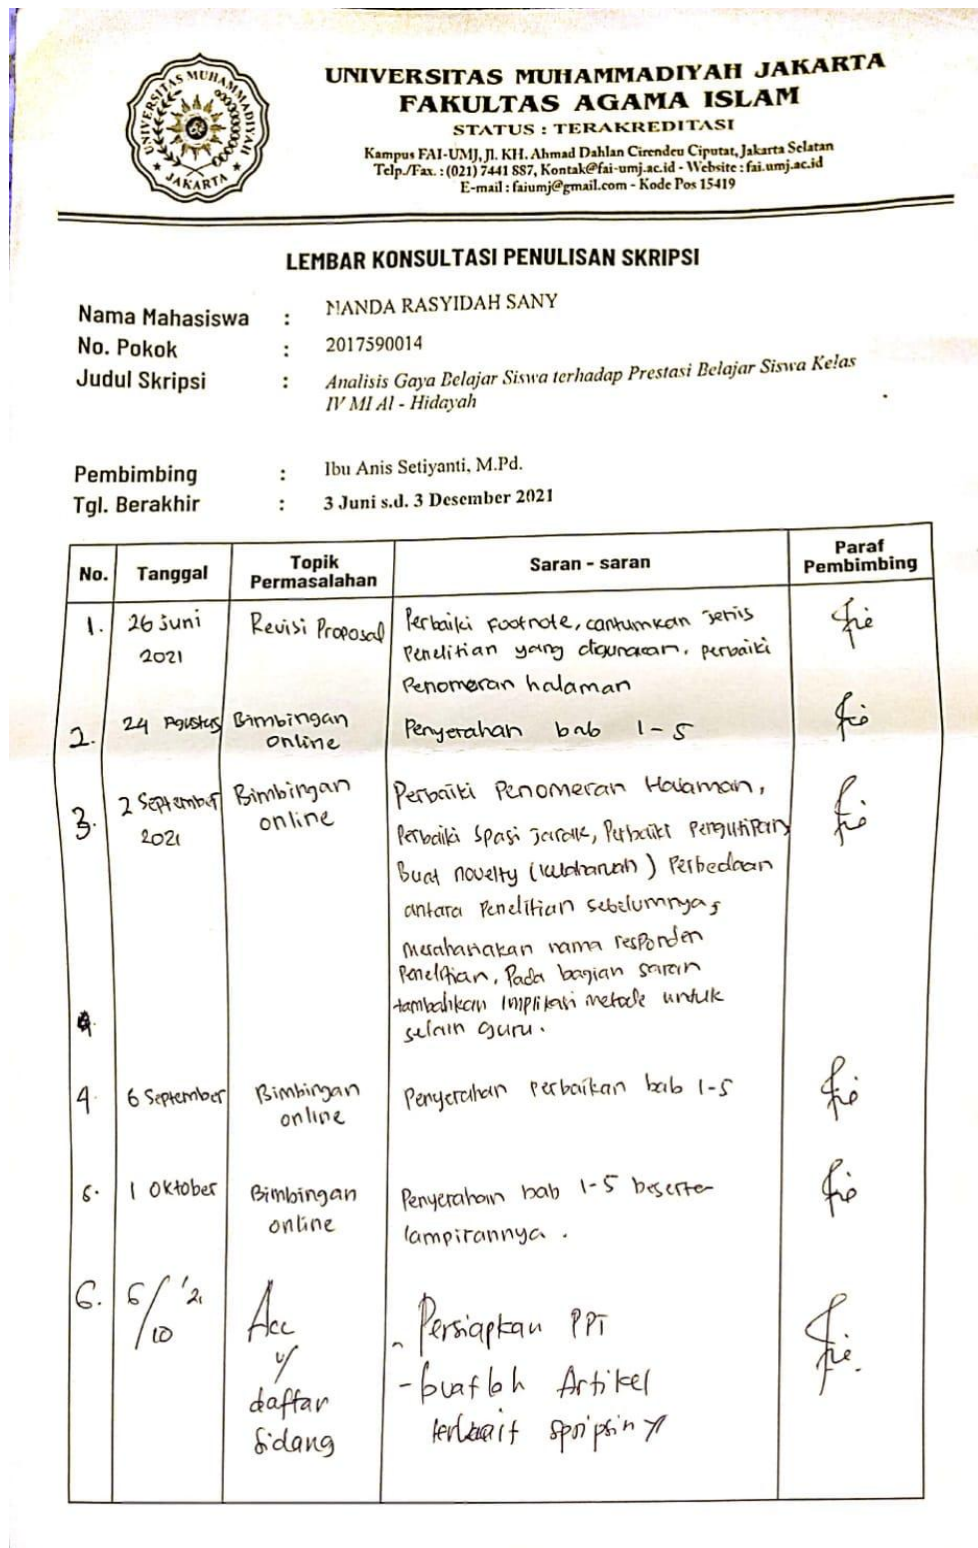 UNIVERSITAS MUHAMMADIYAH JAKARTA
UNIVERSITAS MUHAMMADIYAH JAKARTA
FAKULTAS AGAMA ISLAM
STATUS : TERAKREDITASI
Kampus FAI-UMJ, Jl. KH. Ahmad Dahlan Cirendeu Ciputat, Jakarta Selatan
Telp./Fax. : (021) 7441 887, Kontak@fai-umj.ac.id - Website : fai.umj.ac.id
E-mail : faiumj@gmail.com - Kode Pos 15419
LEMBAR KONSULTASI PENULISAN SKRIPSI
Nama Mahasiswa : NANDA RASYIDAH SANY
No. Pokok : 2017590014
Judul Skripsi : Analisis Gaya Belajar Siswa terhadap Prestasi Belajar Siswa Kelas
IV MI Al - Hidayah
Pembimbing : Ibu Anis Setiyanti, M.Pd.
Tgl. Berakhir : 3 Juni s.d. 3 Desember 2021
No. Tanggal Topik Permasalahan Saran - saran Paraf Pembimbing
1. 26 Juni Revisi Proposal Perbaiki Footnote, cantumkan jenis
2021 Penelitian yang digunakan, perbaiki
Penomeran halaman
2. 24 Agustus Bimbingan Penyerahan bab 1-5
online
3. 2 September Bimbingan Perbaiki Penomeran Halaman,
2021 online Perbaiki spasi jarak, Perbaiki Pengutipan
Buat novelty (kebaharuan) Perbedaan
antara Penelitian sebelumnya,
merahasiakan nama responden
Penelitian, Pada bagian saran
tambahkan implikasi metode untuk
selain guru.
4. 6 September Bimbingan Penyerahan perbaikan bab 1-5
online
5. 1 Oktober Bimbingan Penyerahan bab 1-5 beserta
online lampirannya.
6. 6/10 '21 Acc - Persiapkan PPT
u/ - buatlah Artikel
daftar terkait
Sidang